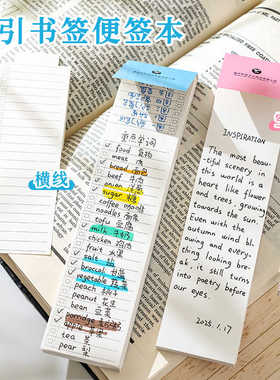 引书签便签本
横线
重点单词
food 食物
meat 肉
bread 面包
beef 牛肉
onion 洋葱
sugar 糖
coffee 咖啡
noodles 面条
tofu 豆腐
milk 牛奶
chicken 鸡肉
fruit 水果
salt 盐
broccoli
vegetable 蔬菜
peach 桃子
peanut 花生
bean 豆
porridge
apple 苹果
tea 茶
pear 梨
INSPIRATION
The most beau-
tiful scenery in
this world is a
heart like flower
and trees, growing
towards the sun.
Even with the
autumn wind bl
owing and every-
thing looking brea-
k, it still turns
into poetry before
our eyes.
2025. 1.17